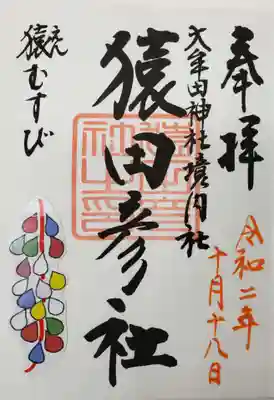 奉拝
大牟田神社境内社
猿田彦社
猿むすび
えん
令和二年
十月十八日